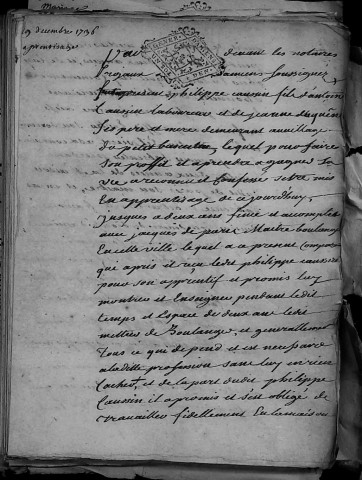 9 decembre 1736
aprentissage
Pardevant les notaires
Royaux Damiens soussignez
fut present philippe caussin fils d'antoine
Caussin laboureur et de jeanne
ses pere et mere demeurant au village
de petit lequel pour faire
son profit et aprendre a gagner sa
vie a reconnu et confessé sestre mis
En apprentissage de ajourdhuy
jusques a deux ans finie et accomplie
avec jacques de paris Maitre boulanger
En cette ville lequel a ce present comparant
qui apres il a reçu ledit philippe caussin
pour son apprentif et promis luy
montrer et Enseigner pendant ledit
temps et Espace de deux ans ledit
mettier de Boulanger, et generallement
Tous ce qui depend et est necessaire
a ladite profession sans luy en rien
Cacher, et de la part dudit philippe
Caussin il a promis et s'est obligé de
travailler fidellement En la maison